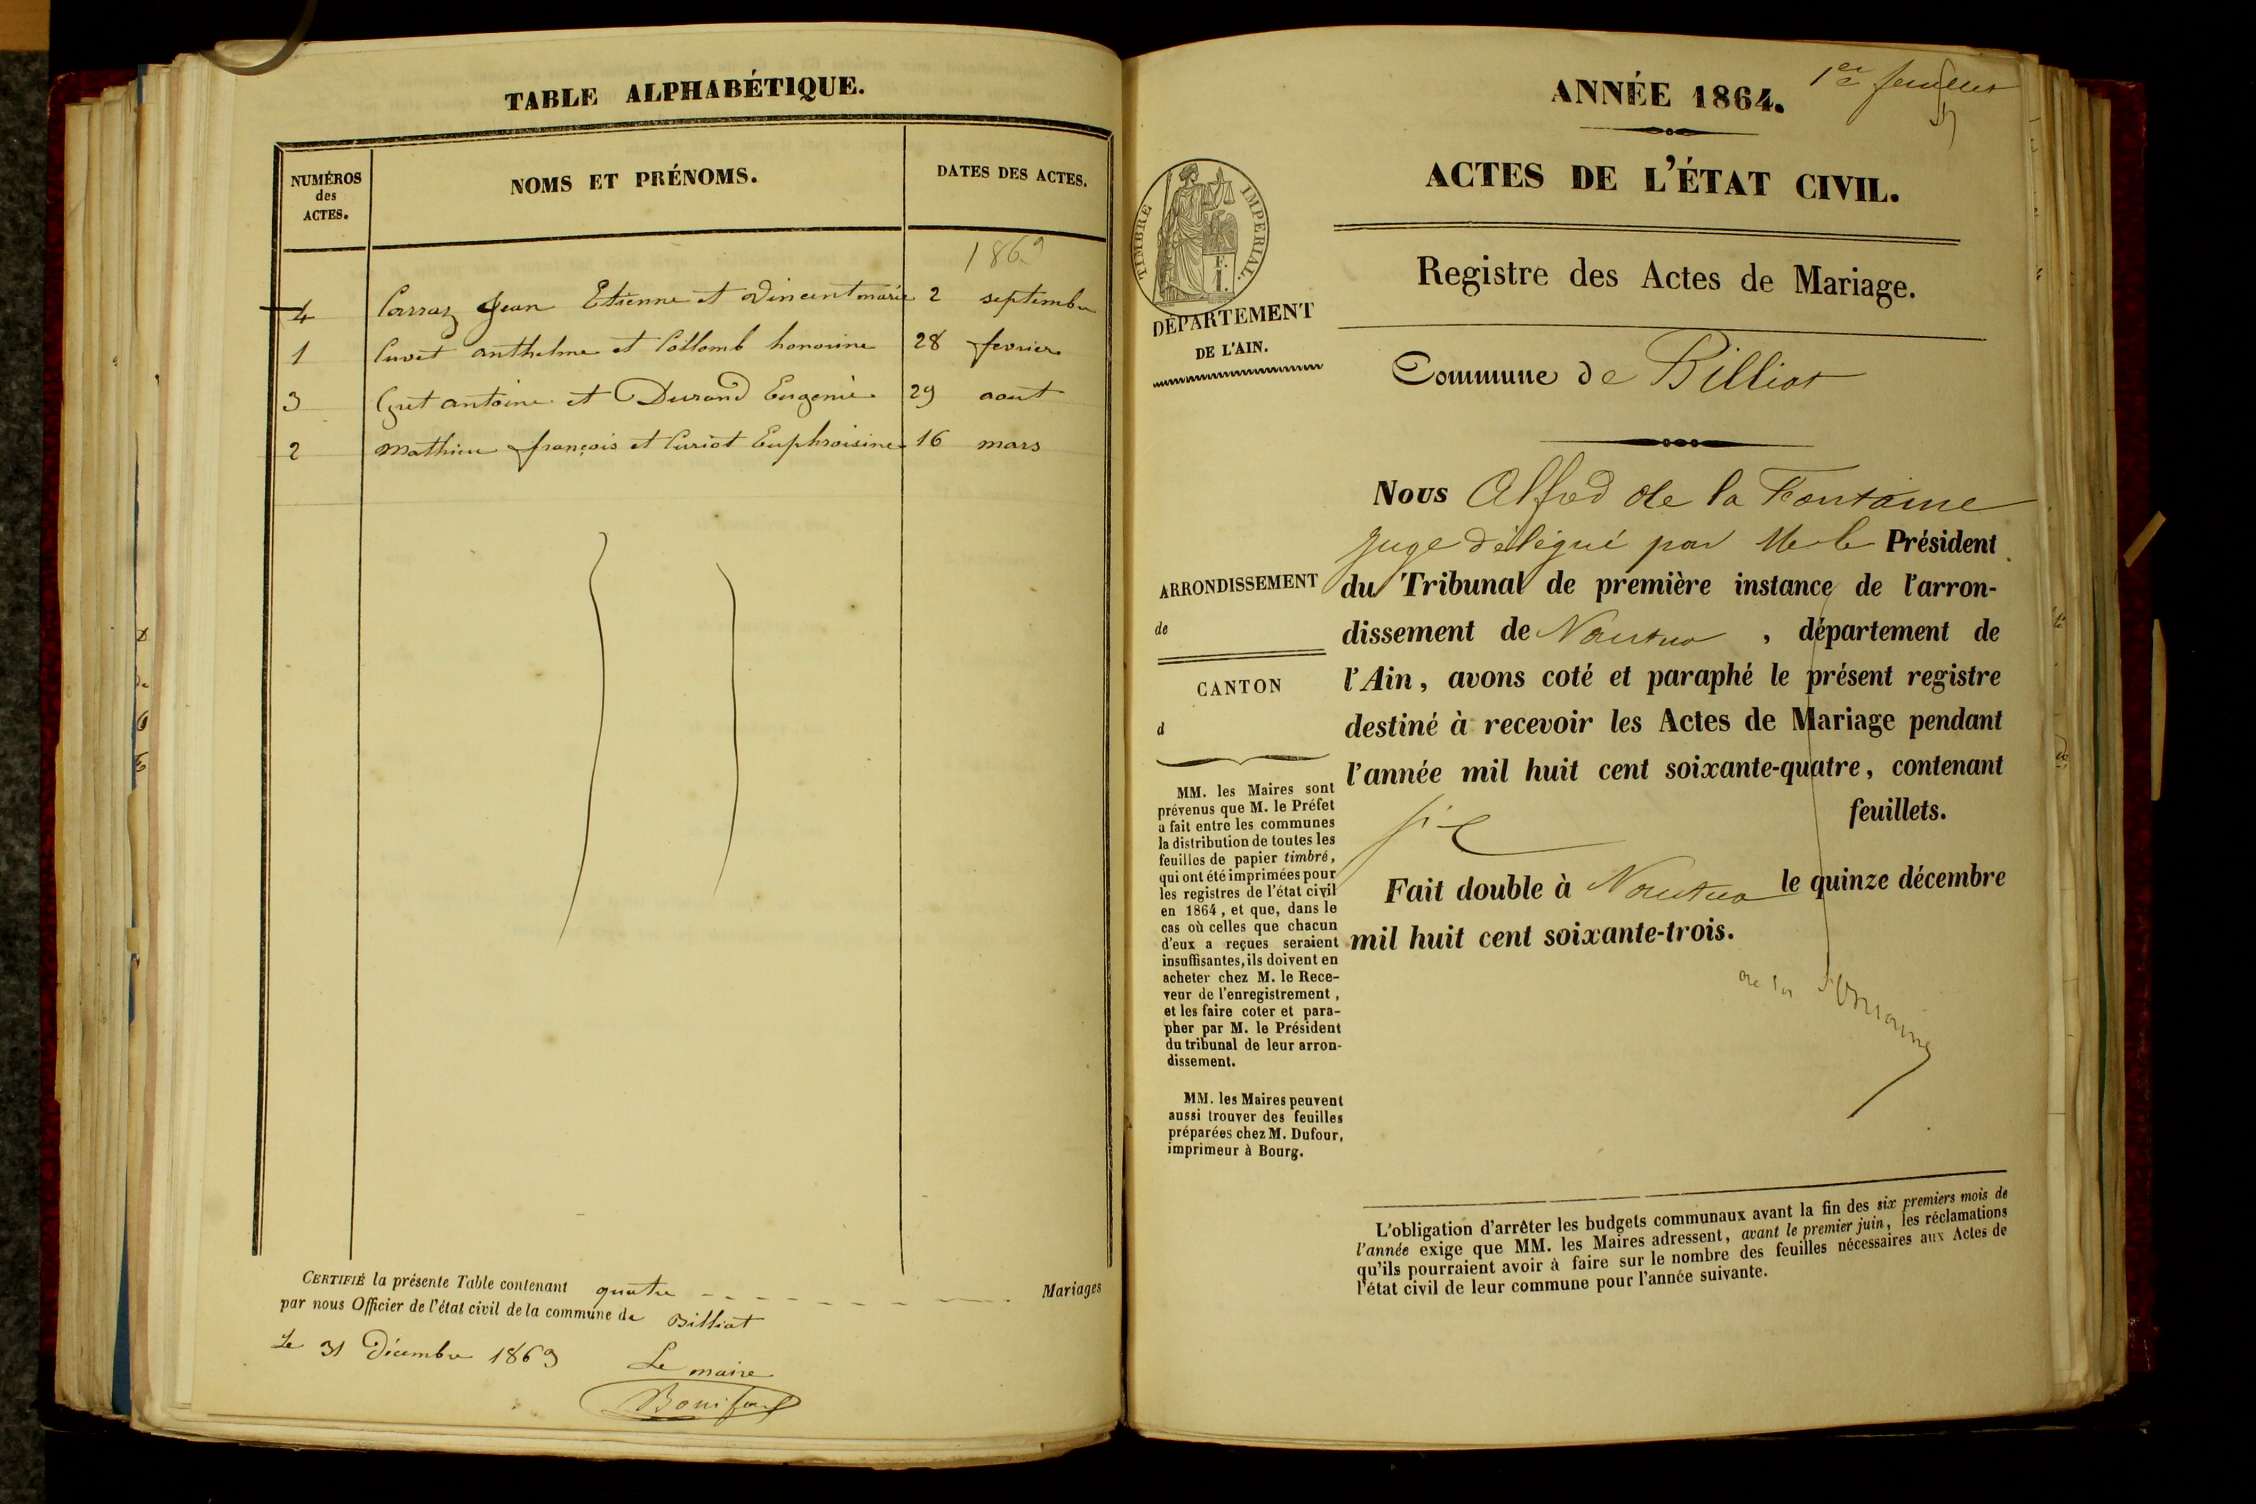 TABLE ALPHABÉTIQUE.
NUMÉROS
des
ACTES.
NOMS ET PRÉNOMS.
DATES DES ACTES.
1863
4 Carraz Jean Etienne et Vincent marie 2 septembre
1 Cuvet anthelme et Collomb honorine 28 fevrier
3 Gret antoine et Durand Eugenie 29 aout
2 Mathieu françois et Curiot Euphroisine 16 mars
CERTIFIÉ la présente Table contenant quatre Mariages
par nous Officier de l'état civil de la commune de Billiat
Le 31 Décembre 1863
Le maire
1er feuillet
ANNÉE 1864.
ACTES DE L'ÉTAT CIVIL.
TIMBRE IMPERIAL.
F.
1.
DÉPARTEMENT
DE L'AIN.
Registre des Actes de Mariage.
Commune de Billiat
Nous Alfred de la Fontaine
Juge délégué par Mr le Président
du Tribunal de première instance de l'arron-
dissement de Nantua, département de
l'Ain, avons coté et paraphé le présent registre
destiné à recevoir les Actes de Mariage pendant
l'année mil huit cent soixante-quatre, contenant
six feuillets.
Fait double à Nantua le quinze décembre
mil huit cent soixante-trois.
de la Fontaine
ARRONDISSEMENT
de
CANTON
d
MM. les Maires sont
prévenus que M. le Préfet
a fait entre les communes
la distribution de toutes les
feuilles de papier timbré,
qui ont été imprimées pour
les registres de l'état civil
en 1864, et que, dans le
cas où celles que chacun
d'eux a reçues seraient
insuffisantes, ils doivent en
acheter chez M. le Rece-
veur de l'enregistrement,
et les faire coter et para-
pher par M. le Président
du tribunal de leur arron-
dissement.
MM. les Maires peuvent
aussi trouver des feuilles
préparées chez M. Dufour,
imprimeur à Bourg.
L'obligation d'arrêter les budgets communaux avant la fin des six premiers mois de
l'année exige que MM. les Maires adressent, avant le premier juin, les réclamations
qu'ils pourraient avoir à faire sur le nombre des feuilles nécessaires aux Actes de
l'état civil de leur commune pour l'année suivante.